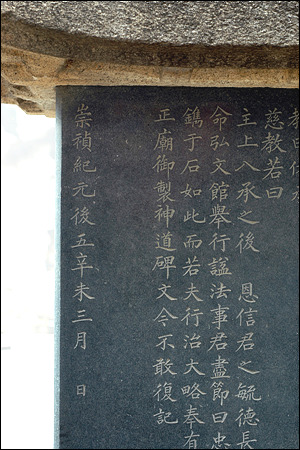 慈教若曰
主上入承之後 恩信君之毓德長
命弘文館舉行諡法事君盡節曰忠
鐫于石如此而若夫行治大略奉有
正廟御製神道碑文今不敢復記
崇禎紀元後五辛未三月 日